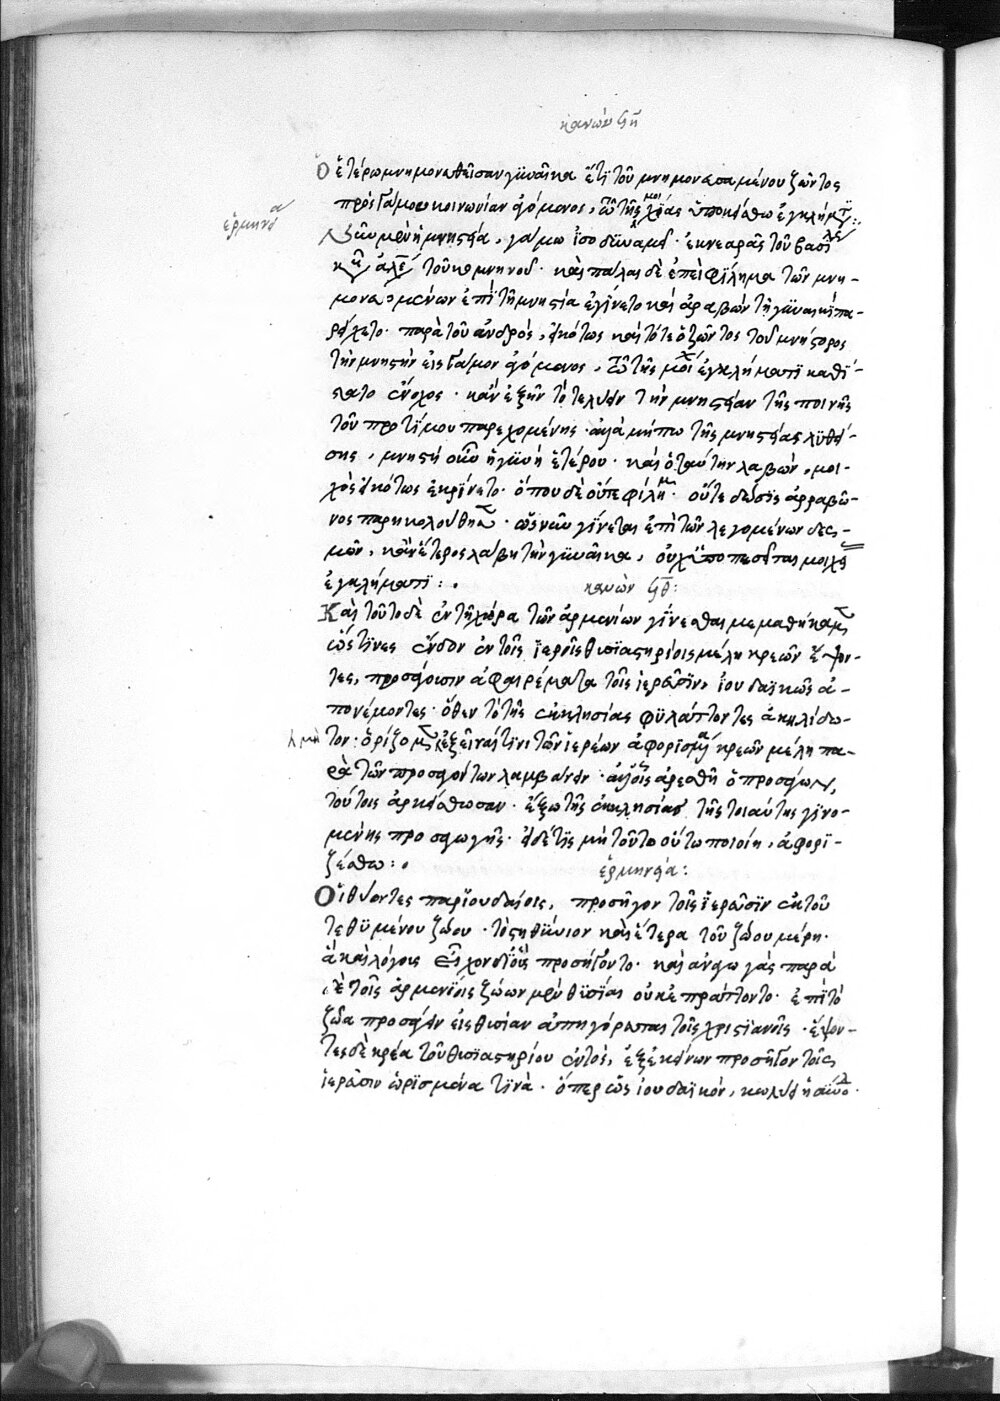 κανών ϟη
Ὁ ἑτέρω μνηστευθεῖσαν γυναῖκα ἔτι τοῦ μνηστευσαμένου ζῶντος
πρὸς γάμου κοινωνίαν ἀγόμενος, τῷ τῆς μοιχείας ὑποκείσθω ἐγκλήματι:
ἑρμηνεία
Νῦν μὲν ἡ μνηστεία, γάμω ἰσοδυναμεῖ· ἐκ νεαρᾶς τοῦ βασιλέως
κυροῦ ἀλεξίου τοῦ κομνηνοῦ· καὶ πάλαι δὲ ἐπεὶ φίλημα τῶν μνη-
μένων ἐπὶ τῆ μνηστεία ἐγίνετο καὶ ἀραβὼν τῆ γυναικὶ πα-
ρείχετο· παρὰ τοῦ ἀνδρός, εἰκότως καὶ τότε ὁ ζῶντος τοῦ μνήστορος
τὴν μνηστὴν εἰς γάμον ἀγόμενος, τῷ τῆς μοιχείας ἐγκλήματι καθί-
στατο ἔνοχος· κἂν ἐξῆν τὸ τελευτᾶν τὴν μνηστείαν τῆς ποινῆς
τοῦ προστίμου παρεχομένης· ἀλλὰ μήπω τῆς μνηστείας λυθεί-
σης, μνηστὴ οὖν ἡ γυνὴ ἑτέρου· καὶ ὁ ταύτην λαβών, μοι-
χὸς εἰκότως ἐκρίνετο· ὅπου δὲ οὔτε φίλημα· οὔτε δόσις ἀρραβῶ-
νος παρηκολούθησεν· ὡς νῦν γίνεται ἐπὶ τῶν λεγομένων δεσ-
μῶν, κἂν ἕτερος λάβη τὴν γυναῖκα, οὐχ ὑποπεσεῖται μοιχείας
ἐγκλήματι:
κανὼν ϟθ:
Καὶ τοῦτο δὲ ἐν τῆ χώρα τῶν ἀρμενίων γίνεσθαι μεμαθήκαμεν
ὥς τινες ἔνδον ἐν τοῖς ἱεροῖς θυσιαστηρίοις μέλη κρεῶν ἕψον-
τες, προσάγουσιν ἀφαιρέματα τοῖς ἱερεῦσιν, ἰουδαϊκῶς ἀ-
πονέμοντες· ὅθεν τὸ τῆς ἐκκλησίας φυλάττοντες ἀκηλίδω-
τον· ὁρίζομεν μὴ ἐξεῖναί τινι τῶν ἱερέων ἀφορισμένα κρεῶν μέλη πα-
ρὰ τῶν προσαγόντων λαμβάνειν· ἀλλ' οἷς ἀρεσθῆ ὁ προσάγων,
τούτοις ἀρκείσθωσαν· ἔξω τῆς ἐκκλησίας τῆς τοιαύτης γινο-
μένης προσαγωγῆς· εἰ δέ τις μὴ τοῦτο οὕτω ποιοίη, ἀφορι-
ζέσθω:
ἑρμηνεία:
Οἱ θύοντες παρ' ἰουδαίοις, προσῆγον τοῖς ἱερεῦσιν ἐκ τοῦ
τεθυμένου ζώου· τὸ στηθύνιον καὶ ἕτερα τοῦ ζώου μέρη·
ἃ καὶ λόγοις εἶχον οἷς προσήγοντο· καὶ παρὰ
δὲ τοῖς ἀρμενίοις ζώων μὲν θυσίαι οὐκ ἐπράττοντο· ἐπεὶ τὸ
ζῶα προσάγειν εἰς θυσίαν ἀπηγόρευται τοῖς χριστιανοῖς· ἕψον-
τες δὲ κρέα τοῦ θυσιαστηρίου ἐντός, ἐξ ἐκείνων προσῆγον τοῖς
ἱερεῦσιν ὡρισμένα τινά· ὅπερ ὡς ἰουδαϊκόν, κωλύει ἡ σύνοδος·